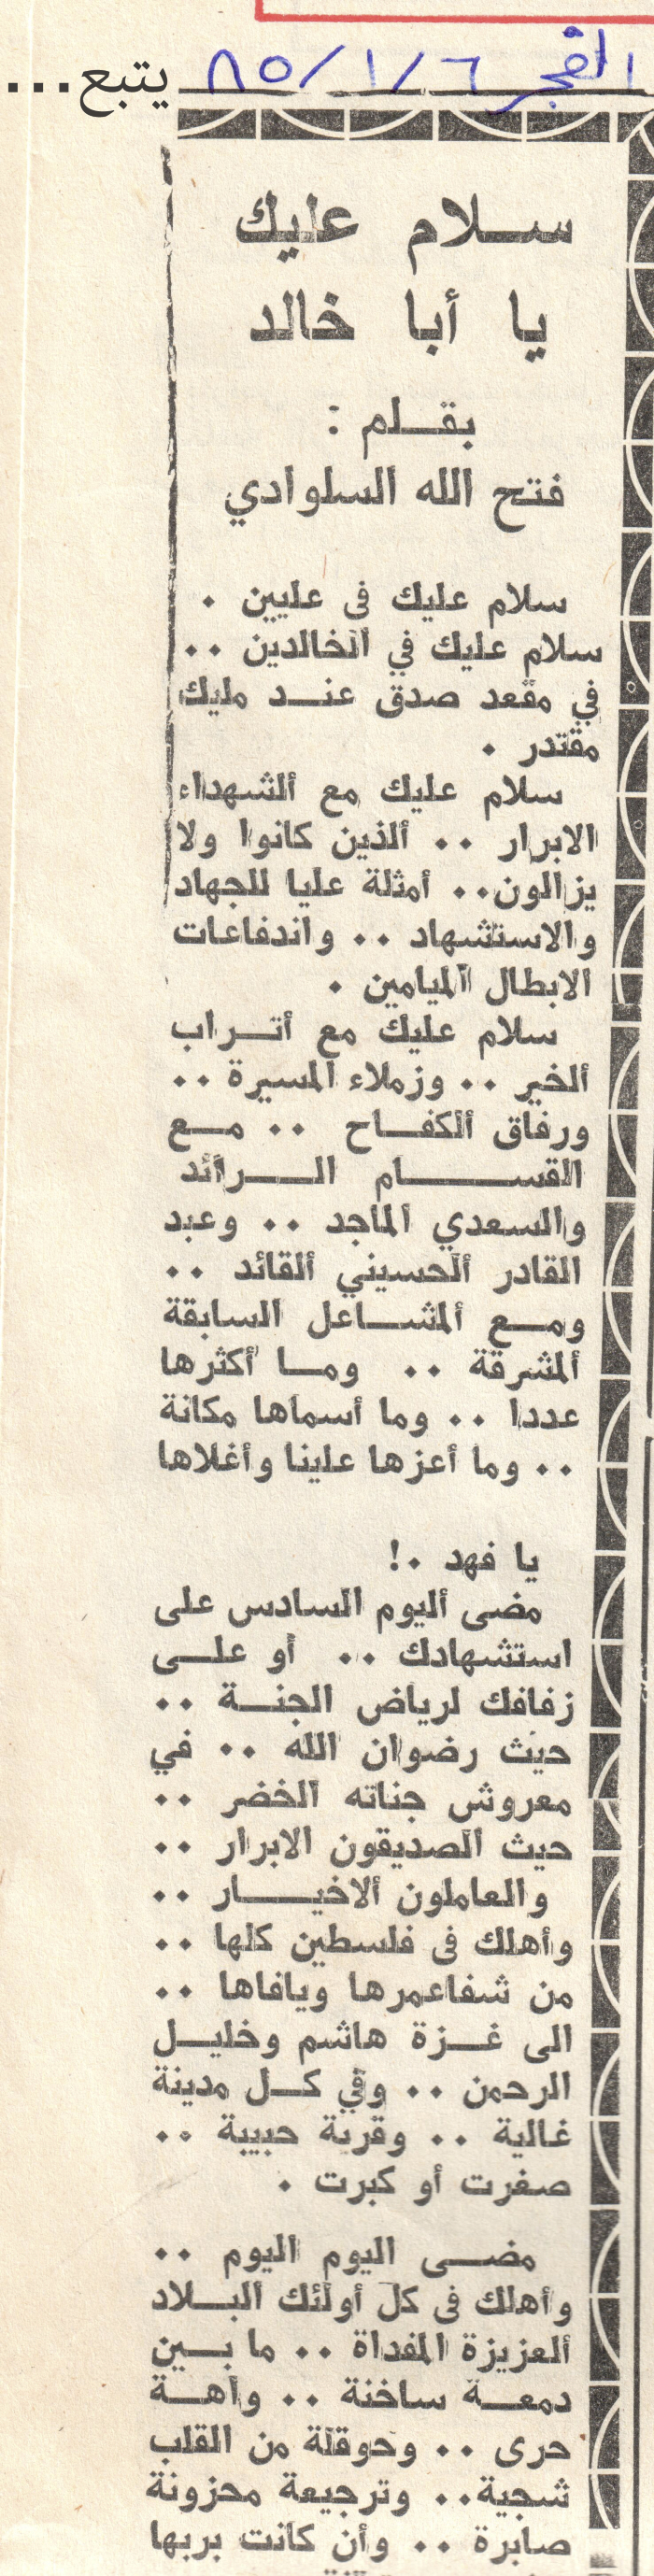 الفجر ٦/١/٨٥
يتبع...
سلام عليك
يا أبا خالد
بقلم :
فتح الله السلوادي
سلام عليك فى عليين .
سلام عليك في الخالدين ..
في مقعد صدق عند مليك
مقتدر .
سلام عليك مع ألشهداء
الابرار .. ألذين كانوا ولا
يزالون.. أمثلة عليا للجهاد
والاستشهاد .. واندفاعات
الابطال الميامين .
سلام عليك مع أتراب
ألخير .. وزملاء المسيرة ..
ورفاق ألكفاح .. مع
القسام الرائد
والسعدي الماجد .. وعبد
القادر ألحسيني ألقائد ..
ومع ألمشاعل السابقة
ألمشرقة .. وما أكثرها
عددا .. وما أسماها مكانة
.. وما أعزها علينا وأغلاها
يا فهد .!
مضى أليوم السادس على
استشهادك .. أو على
زفافك لرياض الجنة ..
حيث رضوان الله .. في
معروش جناته الخضر ..
حيث الصديقون الابرار ..
والعاملون ألاخيار ..
وأهلك فى فلسطين كلها ..
من شفاعمرها ويافاها ..
الى غزة هاشم وخليل
الرحمن .. وفي كل مدينة
غالية .. وقرية حبيبة ..
صغرت أو كبرت .
مضى اليوم اليوم ..
وأهلك فى كل أولئك ألبلاد
ألعزيزة المفداة .. ما بين
دمعة ساخنة .. وآهة
حرى .. وحوقلة من القلب
شجية.. وترجيعة محزونة
صابرة .. وأن كانت بربها